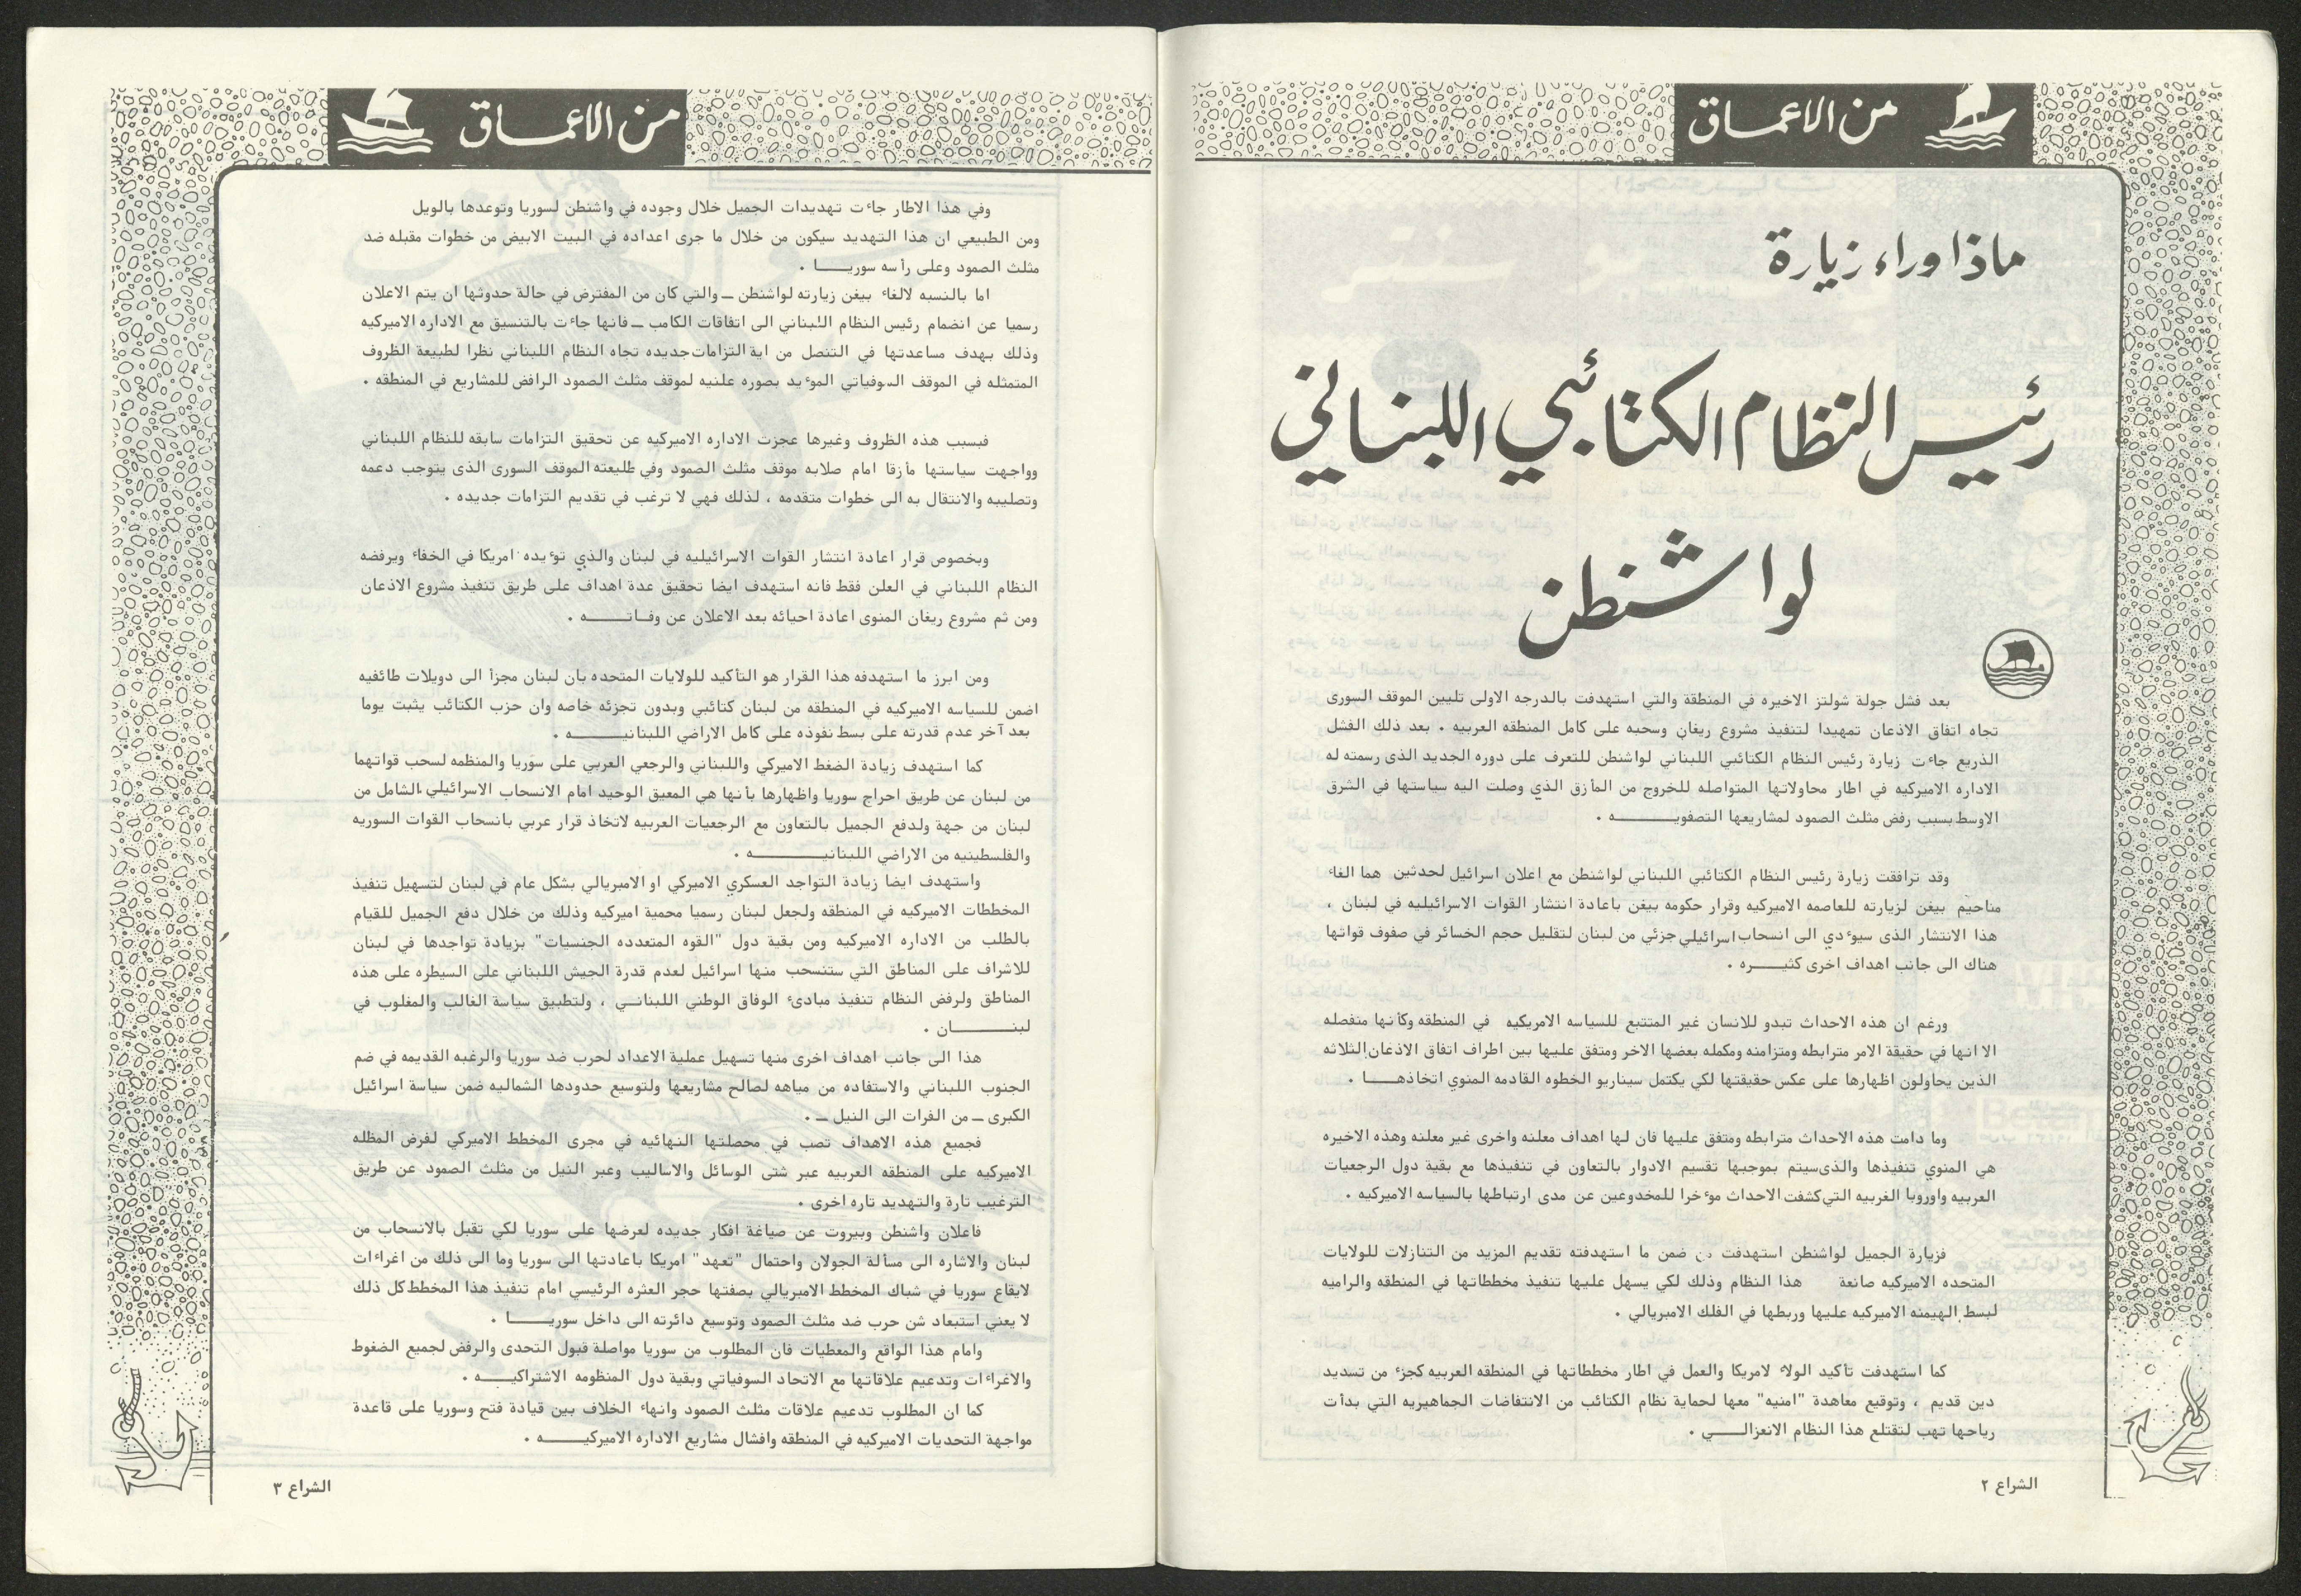 من الاعمـاق
ماذا وراء زيارة
رئيس النظام الكتائبي اللبناني
لواشنطن
بعد فشل جولة شولتز الاخيره في المنطقة والتي استهدفت بالدرجه الاولى تليين الموقف السورى
تجاه اتفاق الاذعان تمهيدا لتنفيذ مشروع ريغان وسحبه على كامل المنطقه العربيه . بعد ذلك الفشل
الذريع جاءت زيارة رئيس النظام الكتائبي اللبناني لواشنطن للتعرف على دوره الجديد الذى رسمته له
الاداره الاميركيه في اطار محاولاتها المتواصله للخروج من المأزق الذي وصلت اليه سياستها في الشرق
الاوسط بسبب رفض مثلث الصمود لمشاريعها التصفويــــــــه .
وقد ترافقت زيارة رئيس النظام الكتائبي اللبناني لواشنطن مع اعلان اسرائيل لحدثين هما الغاء
مناحيم بيغن لزيارته للعاصمه الاميركيه وقرار حكومه بيغن باعادة انتشار القوات الاسرائيليه في لبنان ،
هذا الانتشار الذى سيؤدي الى انسحاب اسرائيلي جزئي من لبنان لتقليل حجم الخسائر في صفوف قواتها
هناك الى جانب اهداف اخرى كثيــــره .
ورغم ان هذه الاحداث تبدو للانسان غير المتتبع للسياسه الامريكيه في المنطقه وكأنها منفصله
الا انها في حقيقة الامر مترابطه ومتزامنه ومكمله بعضها الاخر ومتفق عليها بين اطراف اتفاق الاذعان الثلاثه
الذين يحاولون اظهارها على عكس حقيقتها لكي يكتمل سيناريو الخطوه القادمه المنوي اتخاذهــــا .
وما دامت هذه الاحداث مترابطه ومتفق عليها فان لها اهداف معلنه واخرى غير معلنه وهذه الاخيره
هي المنوي تنفيذها والذى سيتم بموجبها تقسيم الادوار بالتعاون في تنفيذها مع بقية دول الرجعيات
العربيه واوروبا الغربيه التي كشفت الاحداث مؤخرا للمخدوعين عن مدى ارتباطها بالسياسه الاميركيه .
فزيارة الجميل لواشنطن استهدفت من ضمن ما استهدفته تقديم المزيد من التنازلات للولايات
المتحده الاميركيه صانعة هذا النظام وذلك لكي يسهل عليها تنفيذ مخططاتها في المنطقه والراميه
لبسط الهيمنه الاميركيه عليها وربطها في الفلك الامبريالي .
كما استهدفت تأكيد الولاء لامريكا والعمل في اطار مخططاتها في المنطقه العربيه كجزء من تسديد
دين قديم ، وتوقيع معاهدة "امنيه" معها لحماية نظام الكتائب من الانتفاضات الجماهيريه التي بدأت
رياحها تهب لتقتلع هذا النظام الانعزالــــي .
الشراع ٢
من الاعمـاق
وفي هذا الاطار جاءت تهديدات الجميل خلال وجوده في واشنطن لسوريا وتوعدها بالويل
ومن الطبيعي ان هذا التهديد سيكون من خلال ما جرى اعداده في البيت الابيض من خطوات مقبله ضد
مثلث الصمود وعلى رأسه سوريـــــا .
اما بالنسبه لالغاء بيغن زيارته لواشنطن ــ والتي كان من المفترض في حالة حدوثها ان يتم الاعلان
رسميا عن انضمام رئيس النظام اللبناني الى اتفاقات الكامب ــ فانها جاءت بالتنسيق مع الاداره الاميركيه
وذلك بهدف مساعدتها في التنصل من اية التزامات جديده تجاه النظام اللبناني نظرا لطبيعة الظروف
المتمثله في الموقف السوفياتي المؤيد بصوره علنيه لموقف مثلث الصمود الرافض للمشاريع في المنطقه .
فبسبب هذه الظروف وغيرها عجزت الاداره الاميركيه عن تحقيق التزامات سابقه للنظام اللبناني
وواجهت سياستها مأزقا امام صلابه موقف مثلث الصمود وفي طليعته الموقف السورى الذى يتوجب دعمه
وتصليبه والانتقال به الى خطوات متقدمه ، لذلك فهي لا ترغب في تقديم التزامات جديده .
وبخصوص قرار اعادة انتشار القوات الاسرائيليه في لبنان والذي تؤيده امريكا في الخفاء ويرفضه
النظام اللبناني في العلن فقط فانه استهدف ايضا تحقيق عدة اهداف على طريق تنفيذ مشروع الاذعان
ومن ثم مشروع ريغان المنوى اعادة احيائه بعد الاعلان عن وفـاتـــــه .
ومن ابرز ما استهدفه هذا القرار هو التأكيد للولايات المتحده بان لبنان مجزأ الى دويلات طائفيه
اضمن للسياسه الاميركيه في المنطقه من لبنان كتائبي وبدون تجزئه خاصه وان حزب الكتائب يثبت يوما
بعد آخر عدم قدرته على بسط نفوذه على كامل الاراضي اللبنانيـــــــه .
كما استهدف زيادة الضغط الاميركي واللبناني والرجعي العربي على سوريا والمنظمه لسحب قواتهما
من لبنان عن طريق احراج سوريا واظهارها بأنها هي المعيق الوحيد امام الانسحاب الاسرائيلي الشامل من
لبنان من جهة ولدفع الجميل بالتعاون مع الرجعيات العربيه لاتخاذ قرار عربي بانسحاب القوات السوريه
والفلسطينيه من الاراضي اللبنانيـــــــــه .
واستهدف ايضا زيادة التواجد العسكري الاميركي او الامبريالي بشكل عام في لبنان لتسهيل تنفيذ
المخططات الاميركيه في المنطقه ولجعل لبنان رسميا محمية اميركيه وذلك من خلال دفع الجميل للقيام
بالطلب من الاداره الاميركيه ومن بقية دول "القوه المتعدده الجنسيات" بزيادة تواجدها في لبنان
للاشراف على المناطق التي ستنسحب منها اسرائيل لعدم قدرة الجيش اللبناني على السيطره على هذه
المناطق ولرفض النظام تنفيذ مبادىء الوفاق الوطني اللبنانــي ، ولتطبيق سياسة الغالب والمغلوب في
لبنـــــــان .
هذا الى جانب اهداف اخرى منها تسهيل عملية الاعداد لحرب ضد سوريا والرغبه القديمه في ضم
الجنوب اللبناني والاستفاده من مياهه لصالح مشاريعها ولتوسيع حدودها الشماليه ضمن سياسة اسرائيل
الكبرى ــ من الفرات الى النيل ــ .
فجميع هذه الاهداف تصب في محصلتها النهائيه في مجرى المخطط الاميركي لفرض المظله
الاميركيه على المنطقه العربيه عبر شتى الوسائل والاساليب وعبر النيل من مثلث الصمود عن طريق
الترغيب تارة والتهديد تاره اخرى .
فاعلان واشنطن وبيروت عن صياغة افكار جديده لعرضها على سوريا لكي تقبل بالانسحاب من
لبنان والاشاره الى مسألة الجولان واحتمال "تعهد" امريكا باعادتها الى سوريا وما الى ذلك من اغراءات
لايقاع سوريا في شباك المخطط الامبريالي بصفتها حجر العثره الرئيسي امام تنفيذ هذا المخطط كل ذلك
لا يعني استبعاد شن حرب ضد مثلث الصمود وتوسيع دائرته الى داخل سوريـــــا .
وامام هذا الواقع والمعطيات فان المطلوب من سوريا مواصلة قبول التحدى والرفض لجميع الضغوط
والاغراءات وتدعيم علاقاتها مع الاتحاد السوفياتي وبقية دول المنظومه الاشتراكيــــه .
كما ان المطلوب تدعيم علاقات مثلث الصمود وانهاء الخلاف بين قيادة فتح وسوريا على قاعدة
مواجهة التحديات الاميركيه في المنطقه وافشال مشاريع الاداره الاميركيـــــه .
الشراع ٣